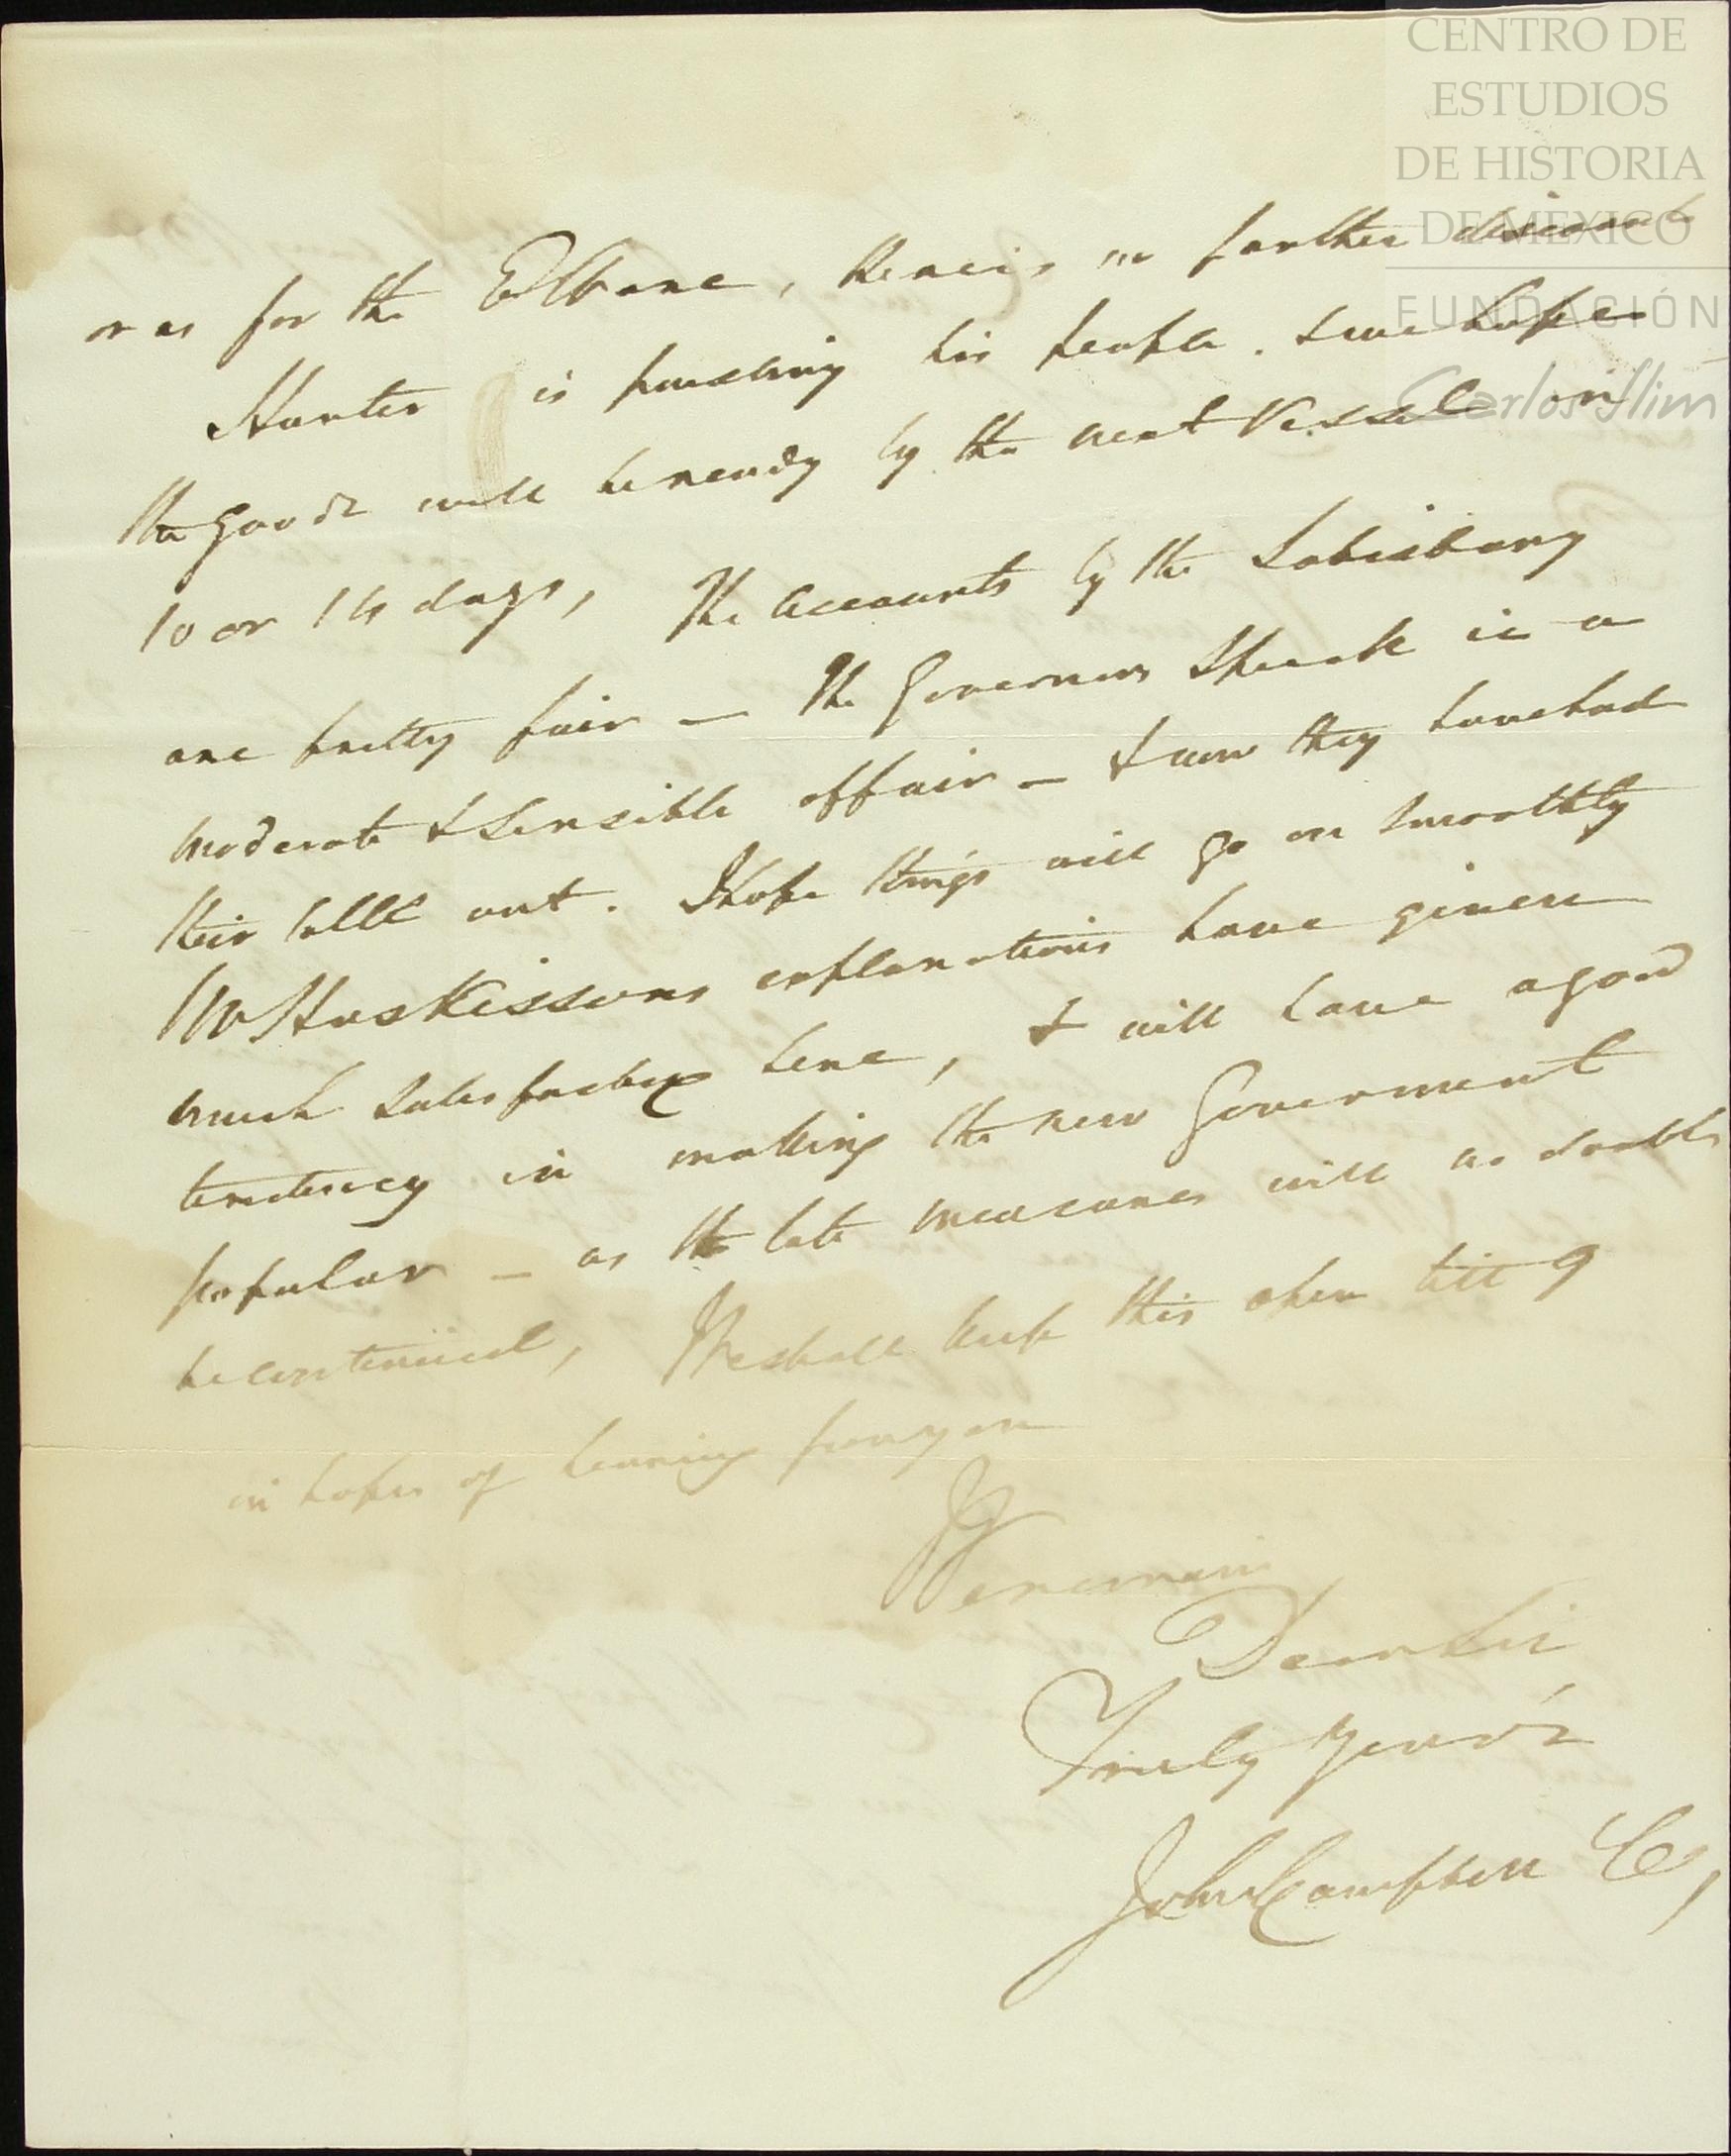 CENTRO DE
ESTUDIOS
DE HISTORIA
DE MEXICO
FUNDACIÓN
Carlos Slim
or as for the , there is no farther
Hunter is pushing his people. & we hope
the goods will be ready by the next Vessel in
10 or 14 days, The accounts by the Salisbury
are pretty fair — The Governors Speech is a
moderate & Sensible affair — & now they have had
their talk out. I hope things will go on smoothly
Mr Huskissons explanations have given
much satisfaction here, & will have a good
tendency in making the new Government
popular — as the late measures will no doubt
be continued, We shall keep this open till 9
in hopes of hearing from you
We remain
Dear Sir
Truly yours
John Campbell Co,